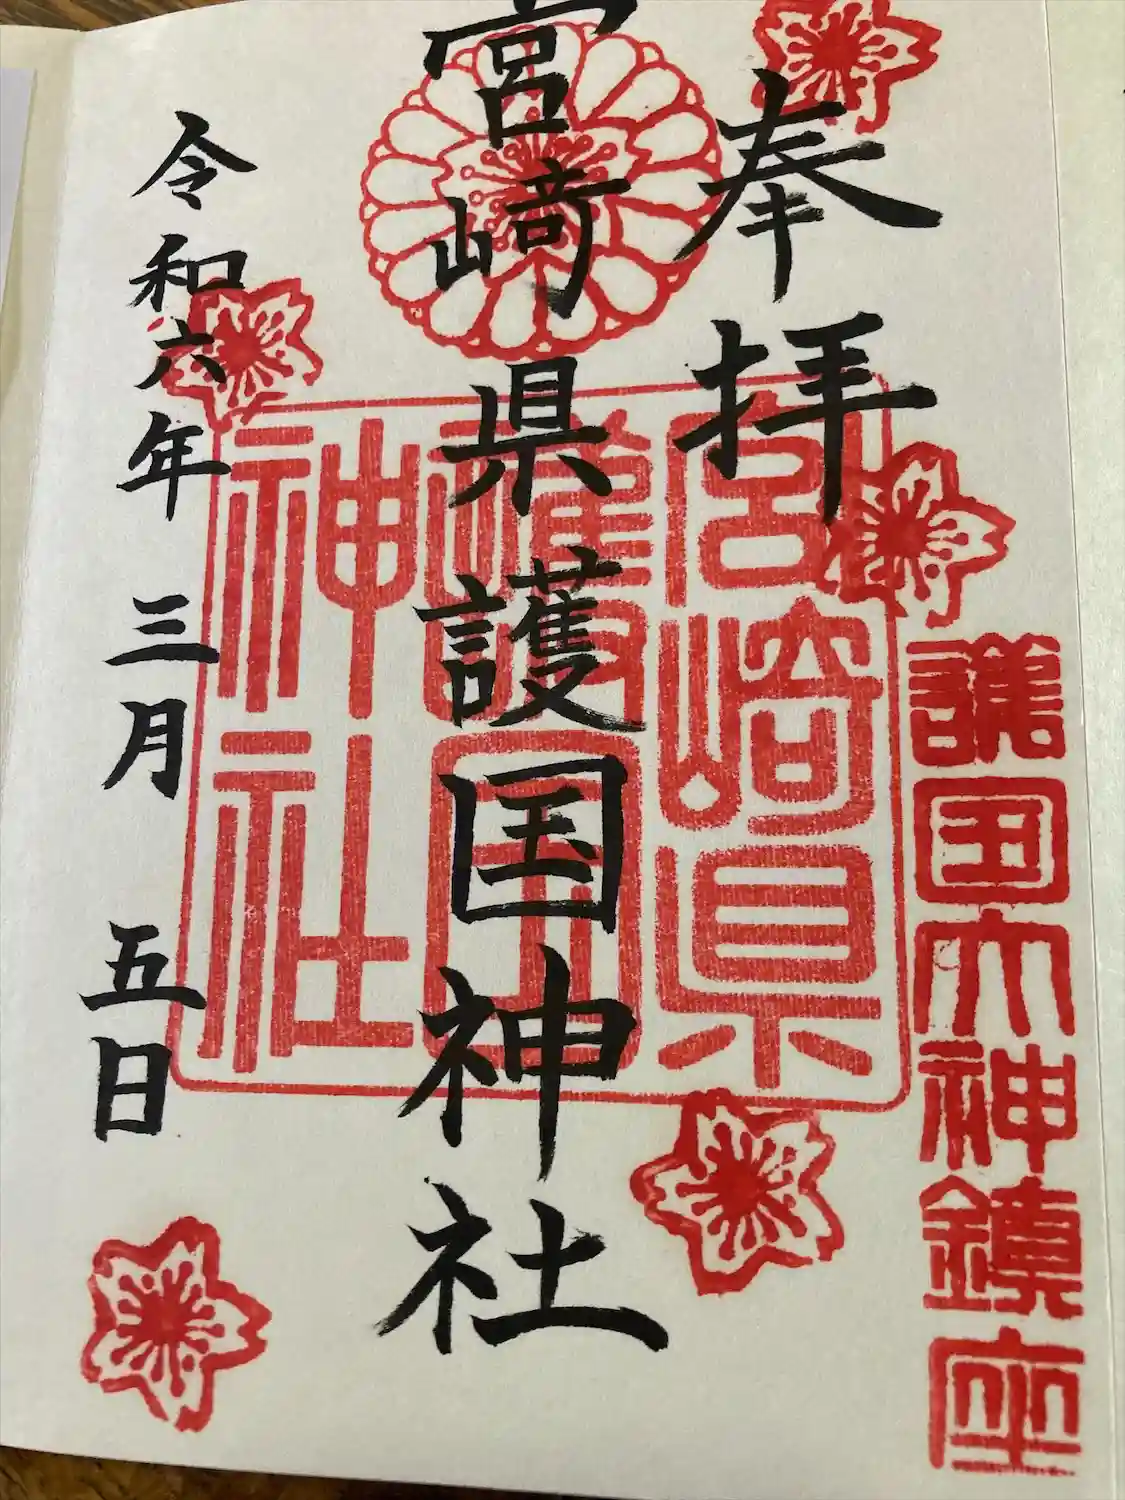 奉拝
護国大神鎮座
宮崎県護国神社
宮崎県
護国
神社
令和六年 三月 五日